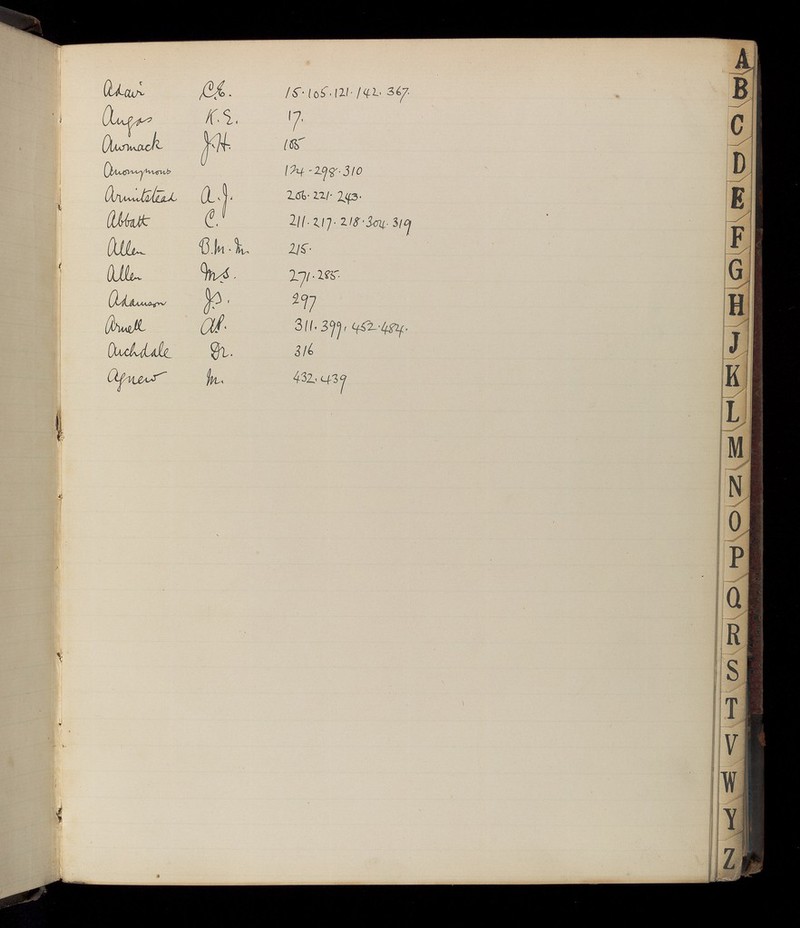 Adair C.E. 15.105.121.142.367.
Angas K.E. 17.
J.H. 105
Anonymous 174-298.310
Armitstead A.J. 206.221.243.
Abbatt C. 211.217.218.304.319
Allen B.M.M. 215.
Allen M.S. 271.285.
Adamson J.S. 297
Arnell 311.399.452.484.
Archdale Dr. 316
Agnew M. 432.439
A
B
C
D
E
F
G
H
J
K
L
M
N
O
P
Q
R
S
T
V
W
Y
Z